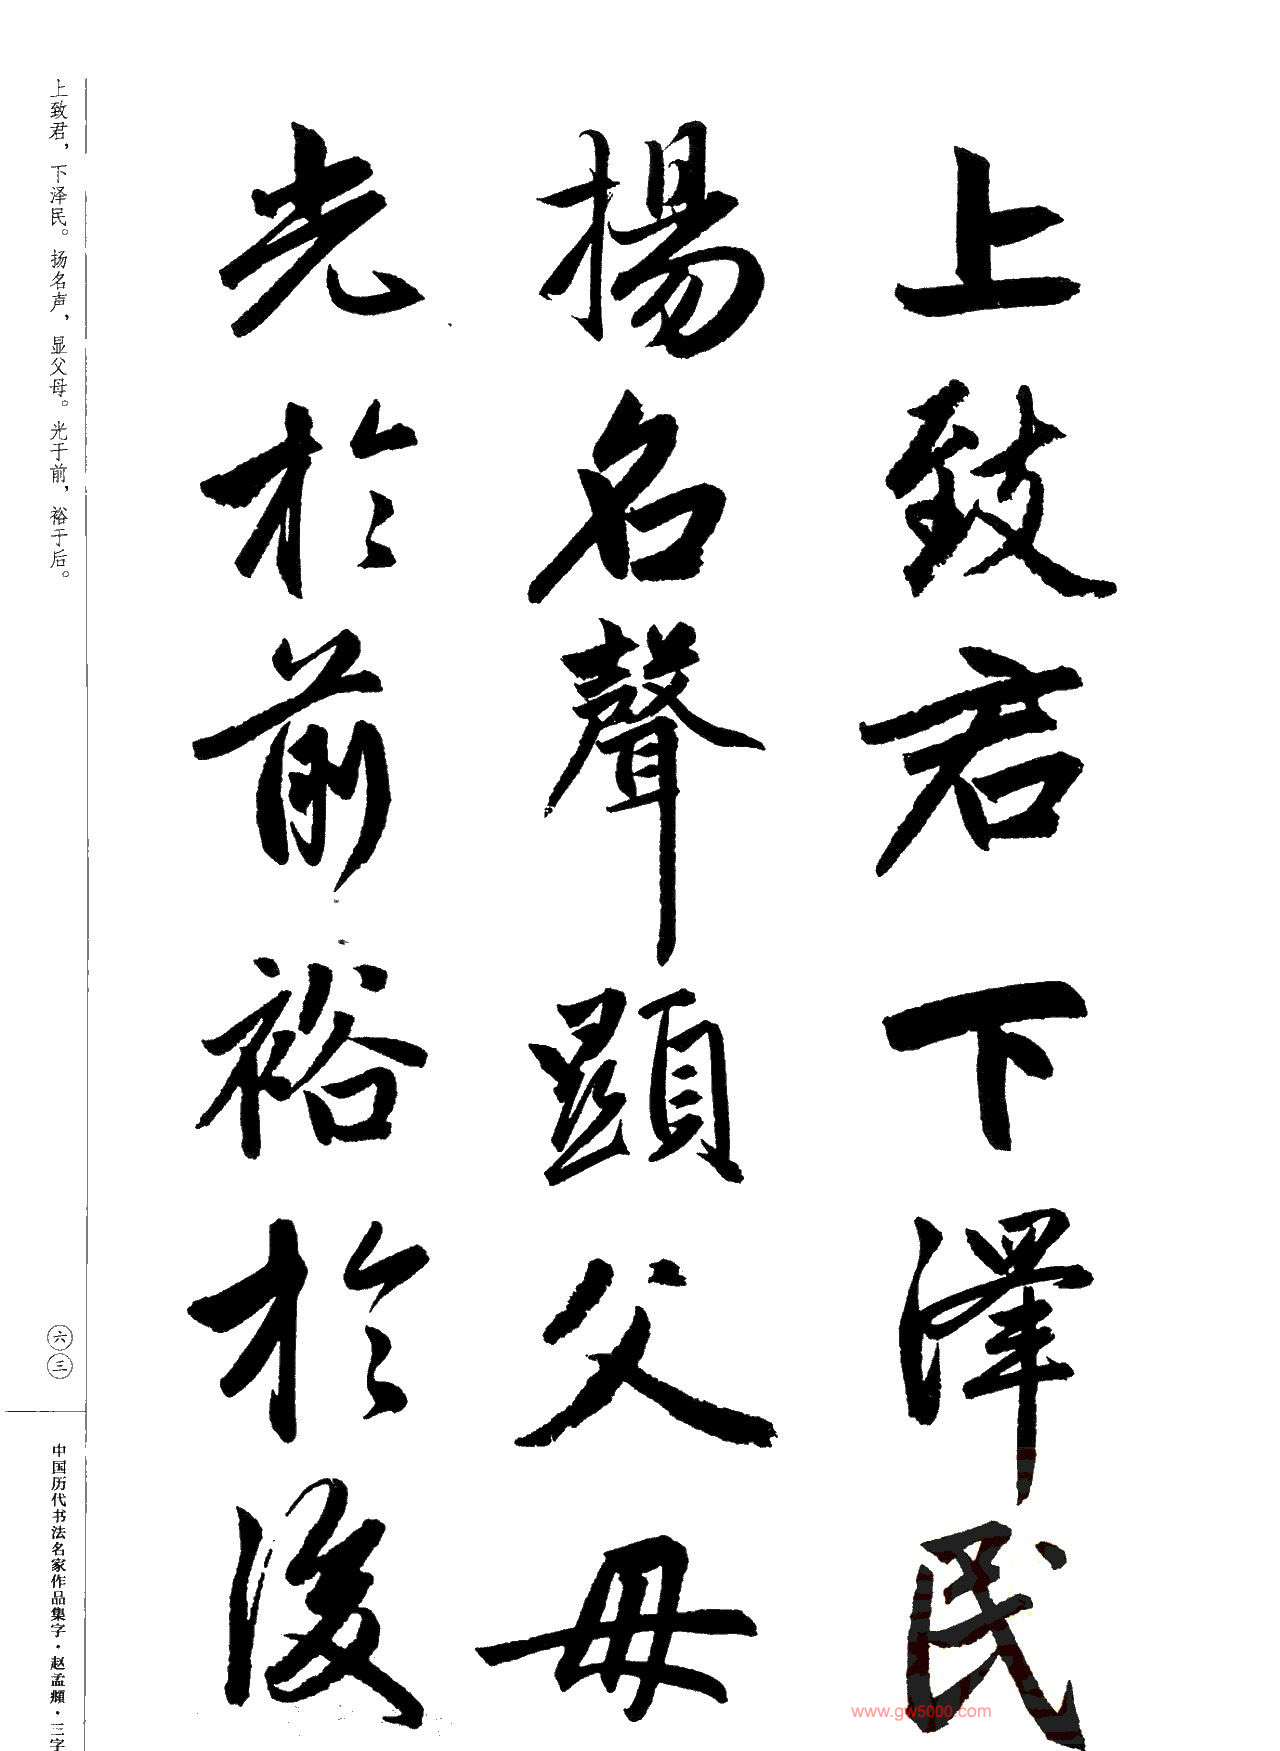 上致君下澤民
揚名聲顯父母
光於前裕於後
上致君，下泽民。扬名声，显父母。光于前，裕于后。
六三
中国历代书法名家作品集字·赵孟頫·三字
www.gw5000.com